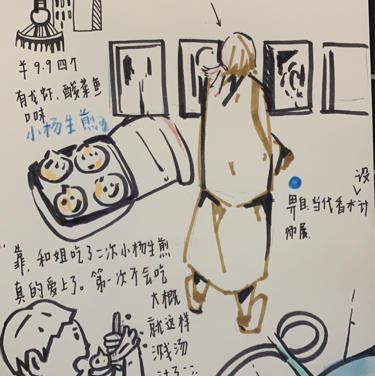 ¥9.9四个
有龙虾、酸菜鱼
口味
小杨生煎
设
界且当代香水计
师展
靠,和姐吃了一次小杨生煎
真的爱上了。第一次不会吃
大概
就这样
溅汤